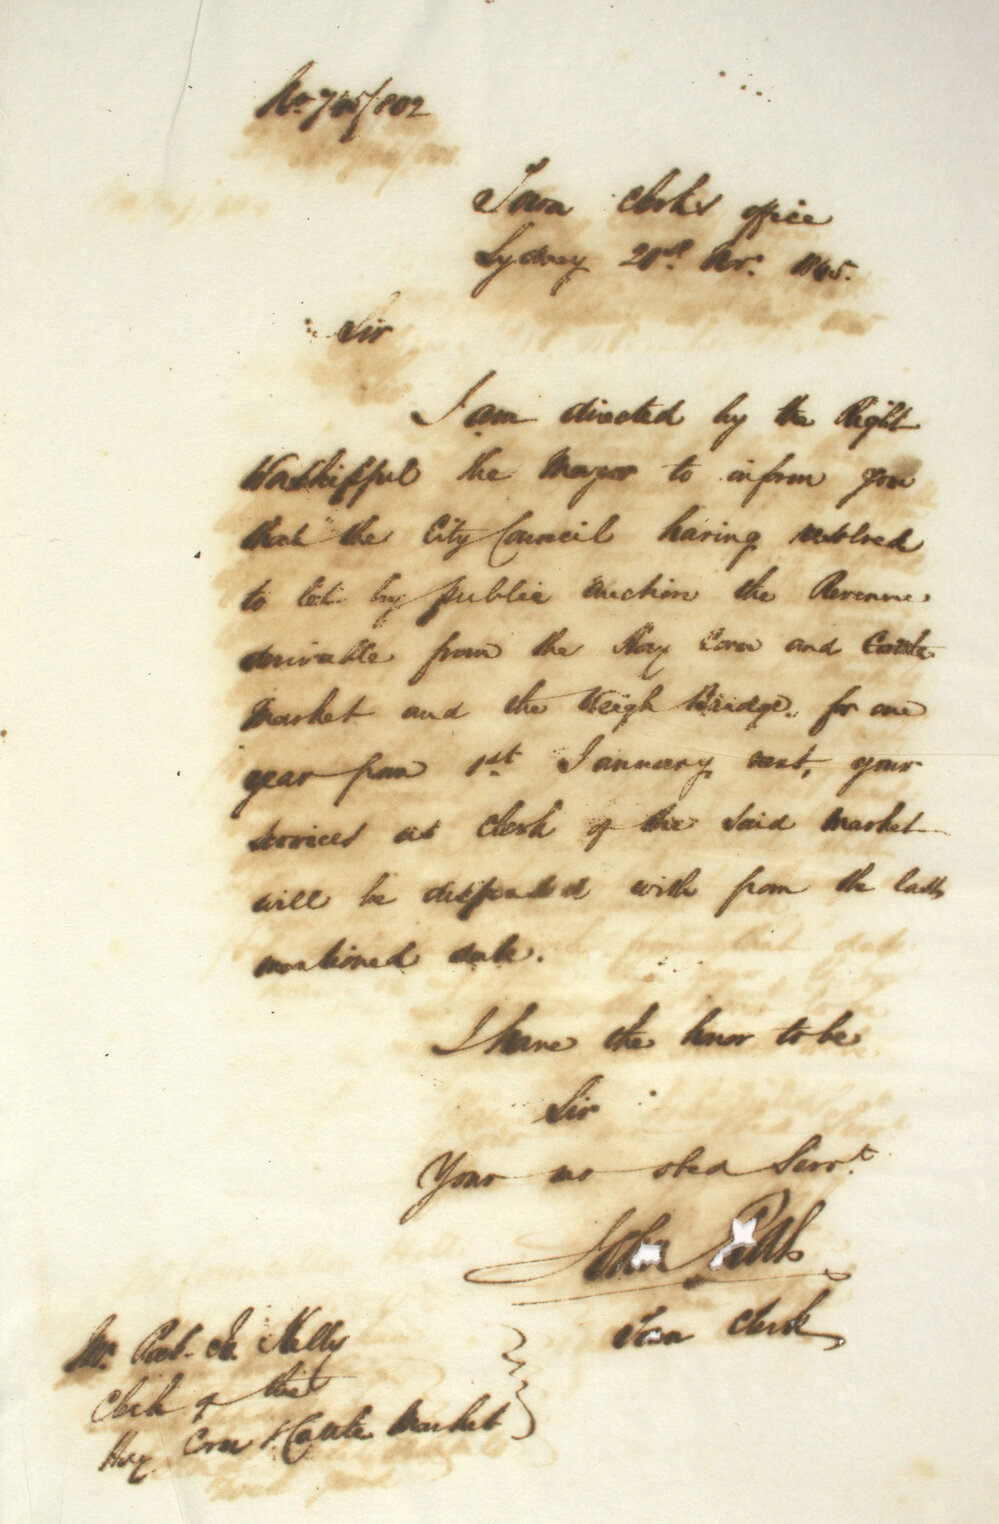 Town Clerks office
Sydney 1845.
Sir
I am directed by the Right
Worshipful the Mayor to inform you
that the City Council having resolved
to let by public auction the Revenue
derivable from the Hay Corn and Cattle
Market and the Weigh Bridge, for one
year from 1st January next, your
services as Clerk of the said Market
will be dispensed with from the last
mentioned date.
I have the honor to be
Sir
Your mo obed Servt.
John
Town Clerk
Mr. Robt. Kelly
Clerk of the
Hay Corn & Cattle Market